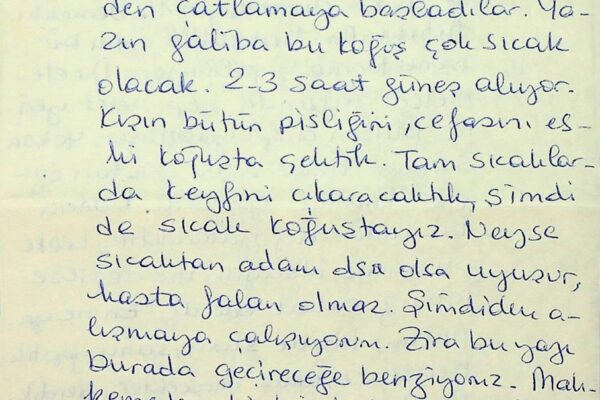 den çatlamaya başladılar. Ya-
zın galiba bu koğuş çok sıcak
olacak. 2-3 saat güneş alıyor.
Kışın bütün pisliğini, cefasını es-
ki koğuşta çektik. Tam sıcaklar-
da keyfini çıkaracaktık, şimdi
de sıcak koğuştayız. Neyse
sıcaktan adam olsa olsa uyuşur,
hasta falan olmaz. Şimdiden a-
lışmaya çalışıyorum. Zira bu yazı
burada geçireceğe benziyoruz. Mah-